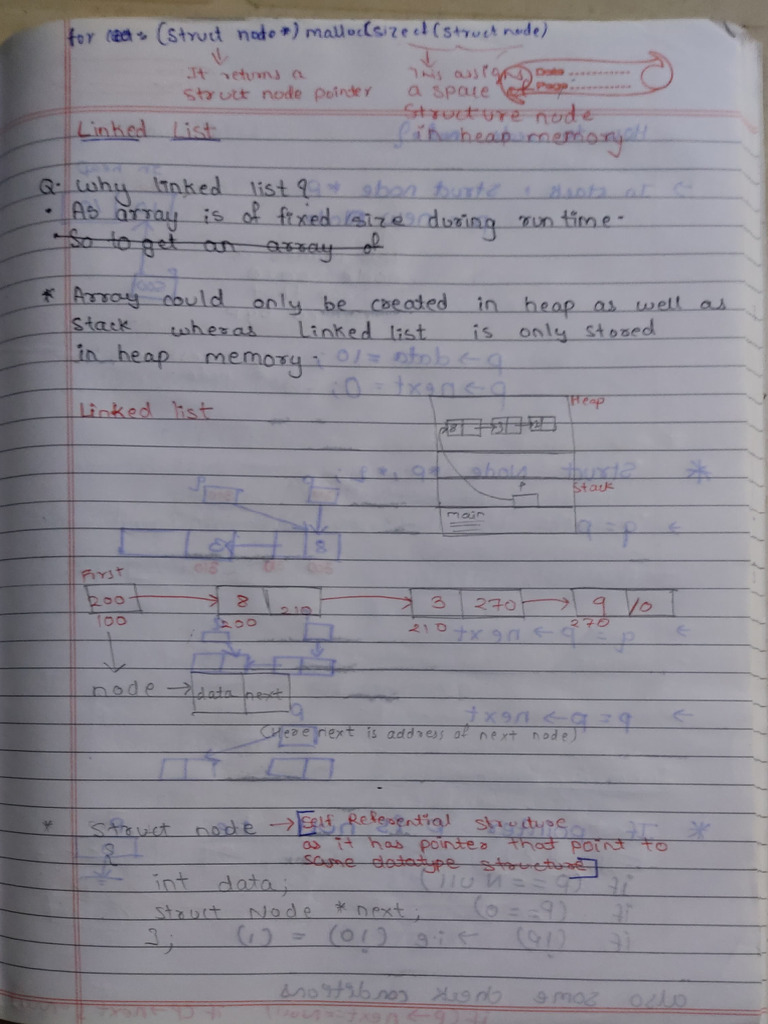 for = (struct node*) malloc(sizeof(struct node)
It returns a
struct node pointer
This assigns
a space of
structure node
in heap memory
Date
Page
Linked List
Q. Why linked list ?
• As array is of fixed size during run time.
• So to get an array of
* Array could only be created in heap as well as
stack wheras linked list is only stored
in heap memory.
Linked list
Heap
Stack
P
main
First
200 8 210 3 270 9 /0
100 200 210 270
node → data next
(Here next is address of next node)
* struct node → [self Referential structure
as it has pointer that point to
same datatype structure]
{
int data;
struct Node * next;
};